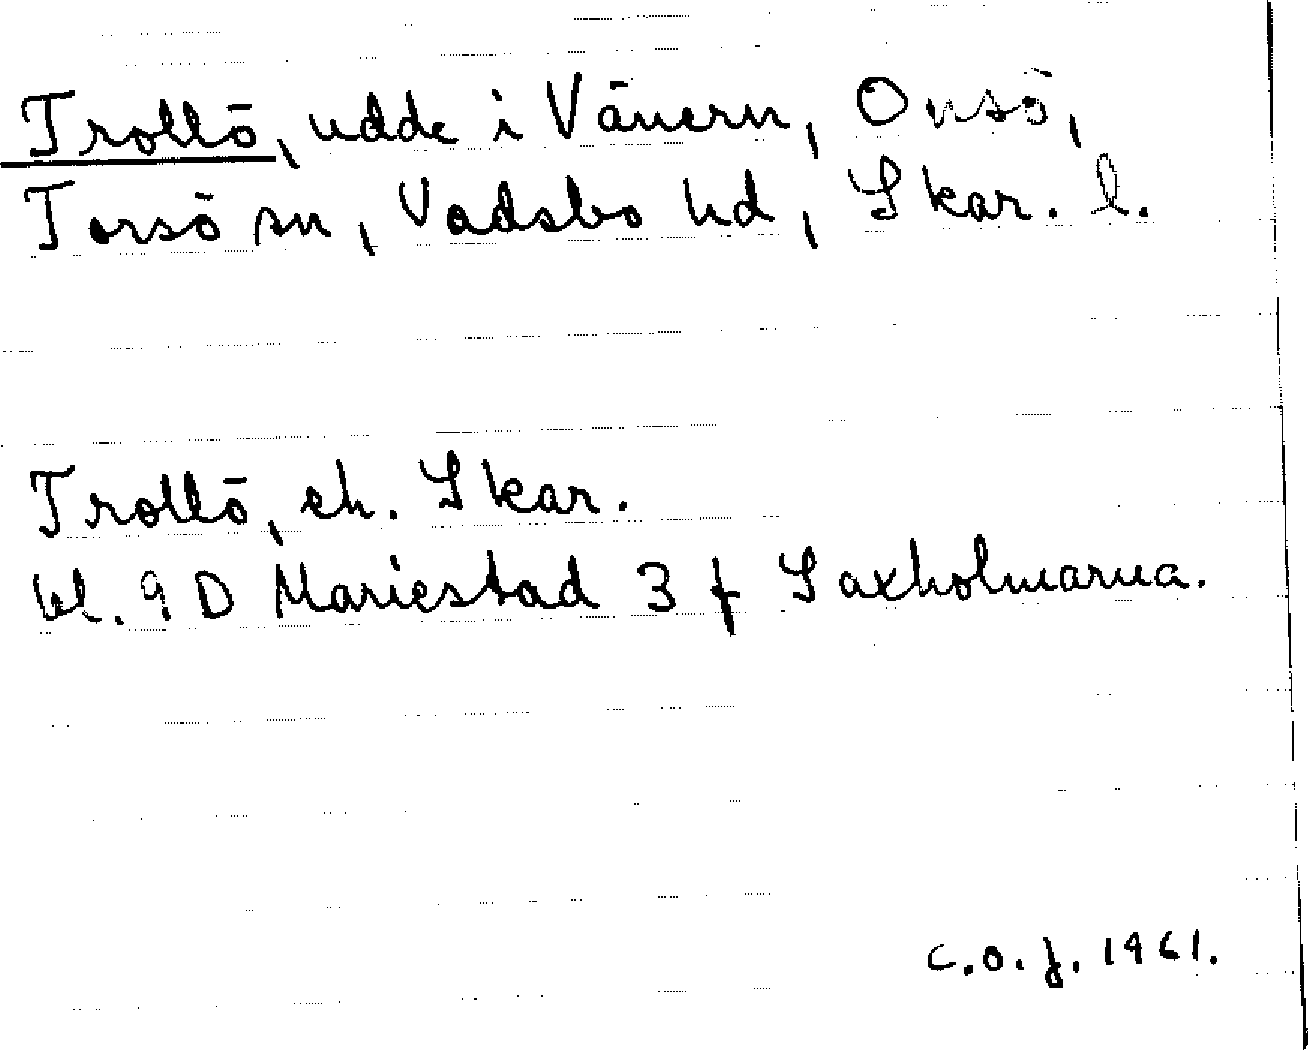 Trollö, udde i Vänern, Onsö,
Torsö sn, Vadsbo hd, Skar. l.
Trollö, ek. Skar.
bl. 9 D Mariestad 3 f Saxholmarna.
C.O.J. 1961.